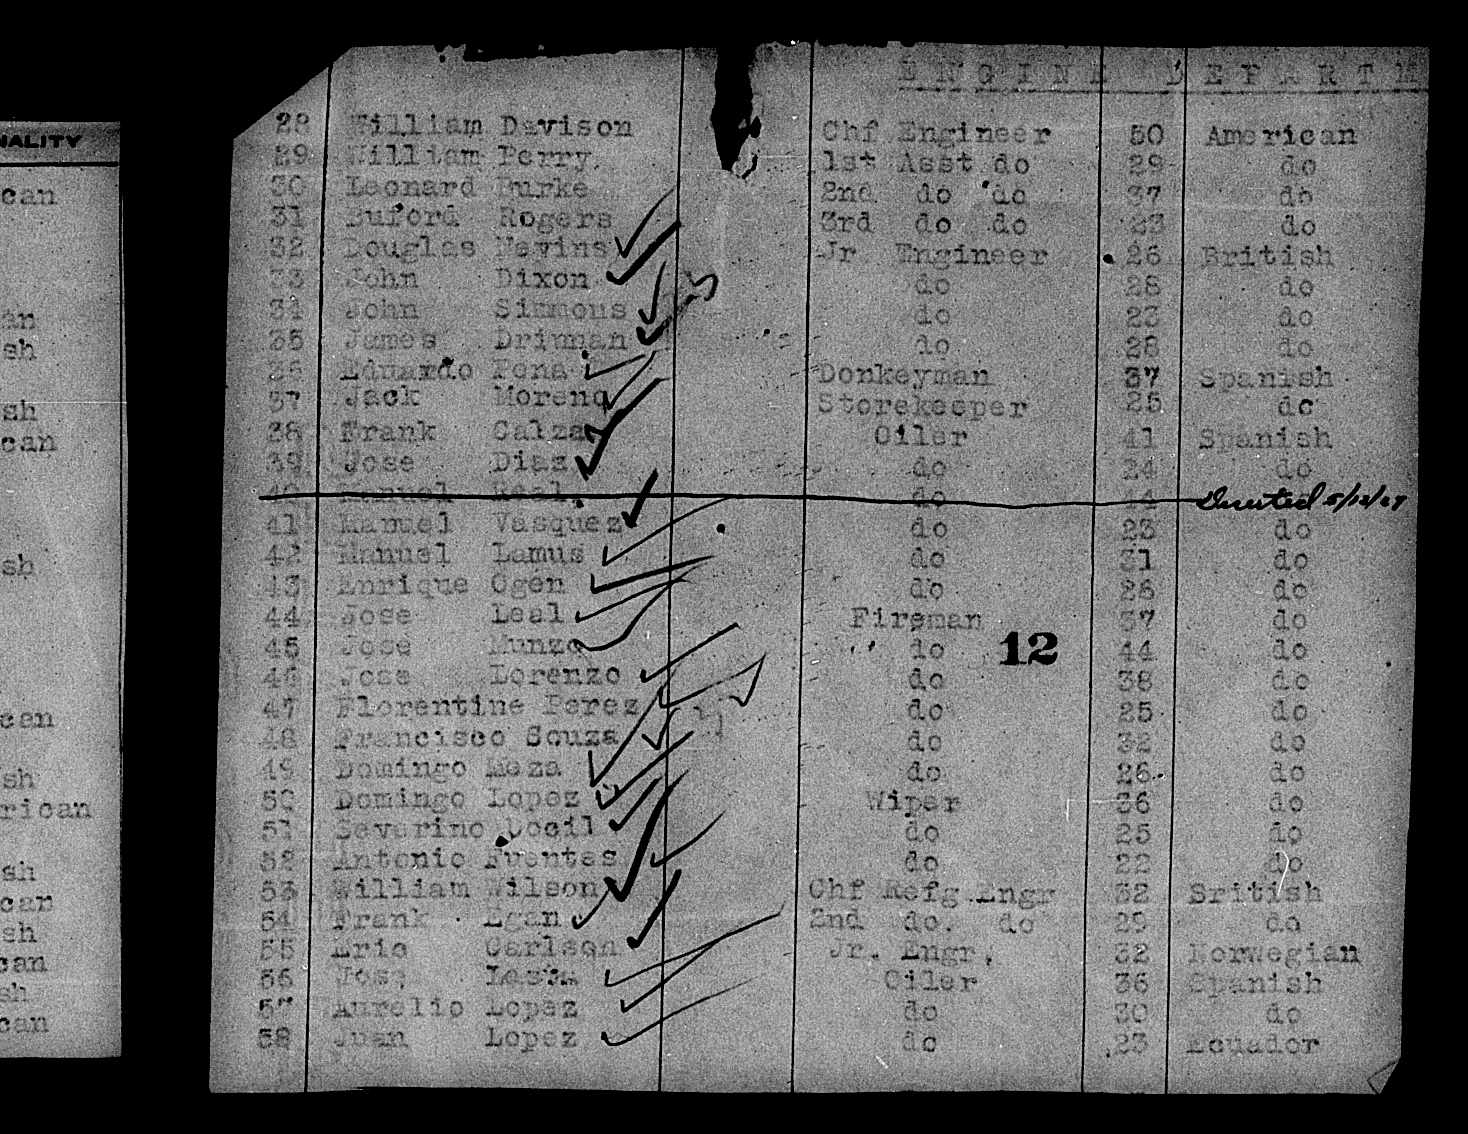 NALITY
can
an
sh
sh
can
sh
can
sh
rican
sh
can
sh
can
sh
can
ENGINE DEPARTM
28 William Davison Chf Engineer 50 American
29 William Perry 1st Asst do 29 do
30 Leonard Burke 2nd do do 37 do
31 Buford Rogers 3rd do do 23 do
32 Douglas Nevins Jr Engineer 26 British
33 John Dixon do 28 do
34 John Simmons do 23 do
35 James Drinnan do 28 do
36 Eduardo Pena Donkeyman 37 Spanish
37 Jack Moreno Storekeeper 25 do
38 Frank Calza Oiler 41 Spanish
39 Jose Diaz do 24 do
40 Manuel Real do 44 Deserted 5/12/27
41 Manuel Vasquez do 23 do
42 Manuel Lamus do 31 do
43 Enrique Ogen do 26 do
44 Jose Leal Fireman 37 do
45 Jose Munzo do 12 44 do
46 Jose Lorenzo do 38 do
47 Florentine Perez do 25 do
48 Francisco Souza do 32 do
49 Domingo Meza do 26 do
50 Domingo Lopez Wiper 36 do
51 Severino Docil do 25 do
52 Antonio Fuentes do 22 do
53 William Wilson Chf Refg Engr 32 British
54 Frank Egan 2nd do. do 29 do
55 Eric Carlson Jr. Engr. 32 Norwegian
56 Jose Oiler 36 Spanish
57 Aurelio Lopez do 30 do
58 Juan Lopez do 23 Ecuador